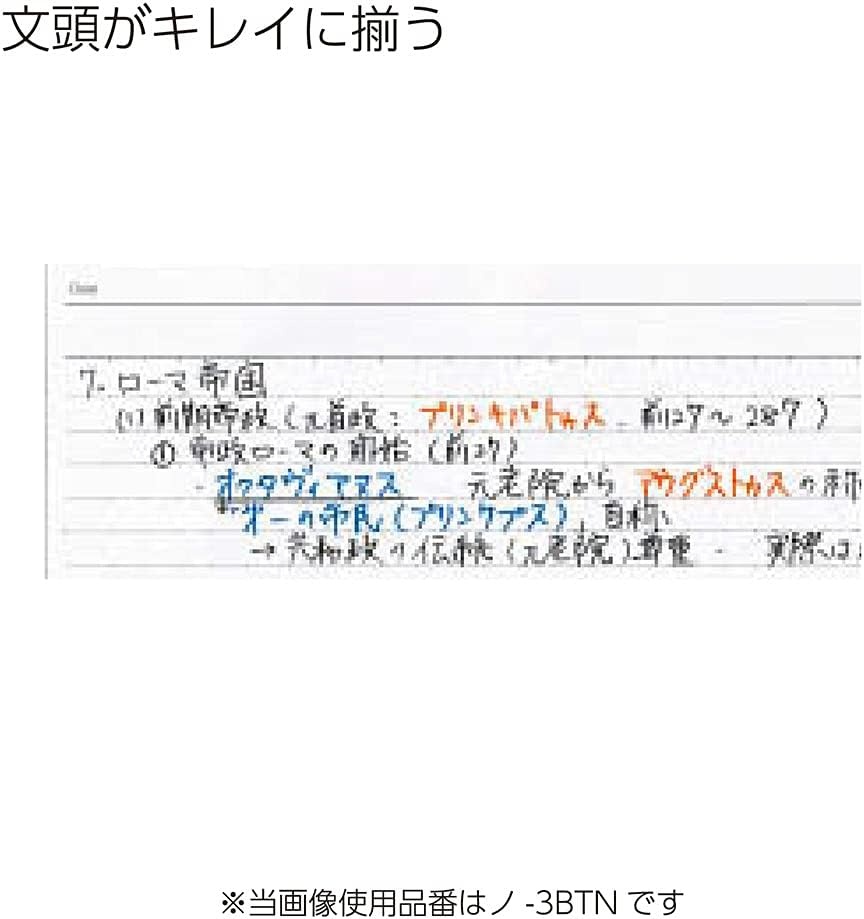 文頭がキレイに揃う
7. ローマ帝国
(1) 前期帝政 (元首政 : プリンキパトゥス 前27〜287 )
① 帝政ローマの開始 (前27)
- オクタヴィアヌス 元老院から アウグストゥス の称
"第一の市民 (プリンケプス)" 自称
→ 共和政の伝統 (元老院) 尊重 - 実際は
※当画像使用品番はノ-3BTNです